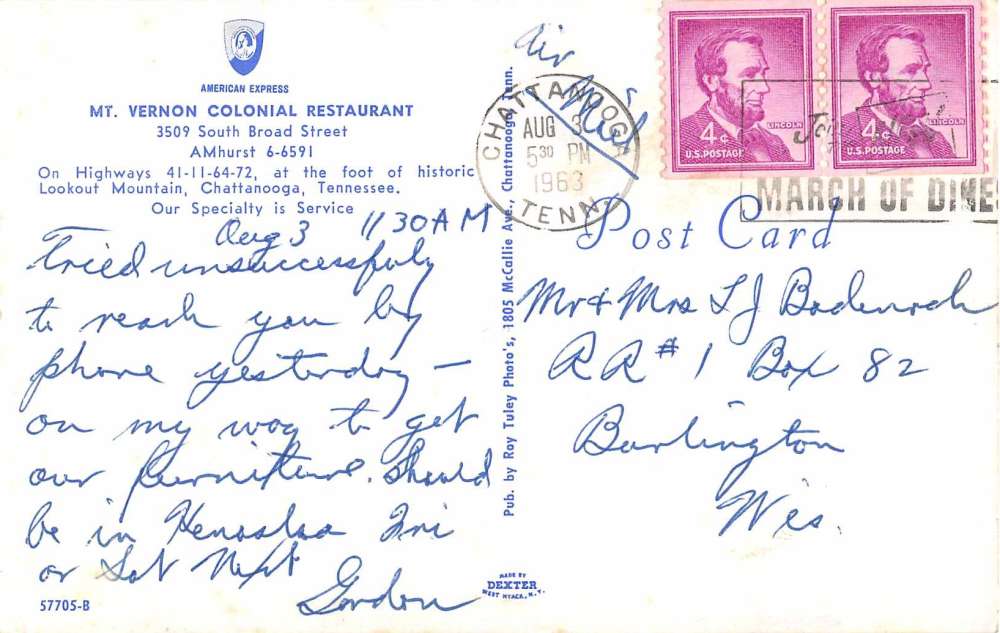 AMERICAN EXPRESS
MT. VERNON COLONIAL RESTAURANT
3509 South Broad Street
AMhurst 6-6591
On Highways 41-11-64-72, at the foot of historic
Lookout Mountain, Chattanooga, Tennessee.
Our Specialty is Service
Aug 3 11 30 A M
Tried unsuccessfuly
to reach you by
phone yesterday —
on my way to get
our furniture. Should
be in Kenosha Fri
or Sat Next
Gordon
57705-B
Pub. by Roy Tuley Photo's, 1805 McCallie Ave., Chattanooga, Tenn.
MADE BY
DEXTER
WEST NYACK, N.Y.
Air Mail
CHATTANOOGA
AUG 3
5 30 PM
1963
TENN.
4¢ LINCOLN
U.S. POSTAGE
4¢ LINCOLN
U.S. POSTAGE
MARCH OF DIME
Post Card
Mr & Mrs L J Badenoch
RR # 1 Box 82
Burlington
Wis.